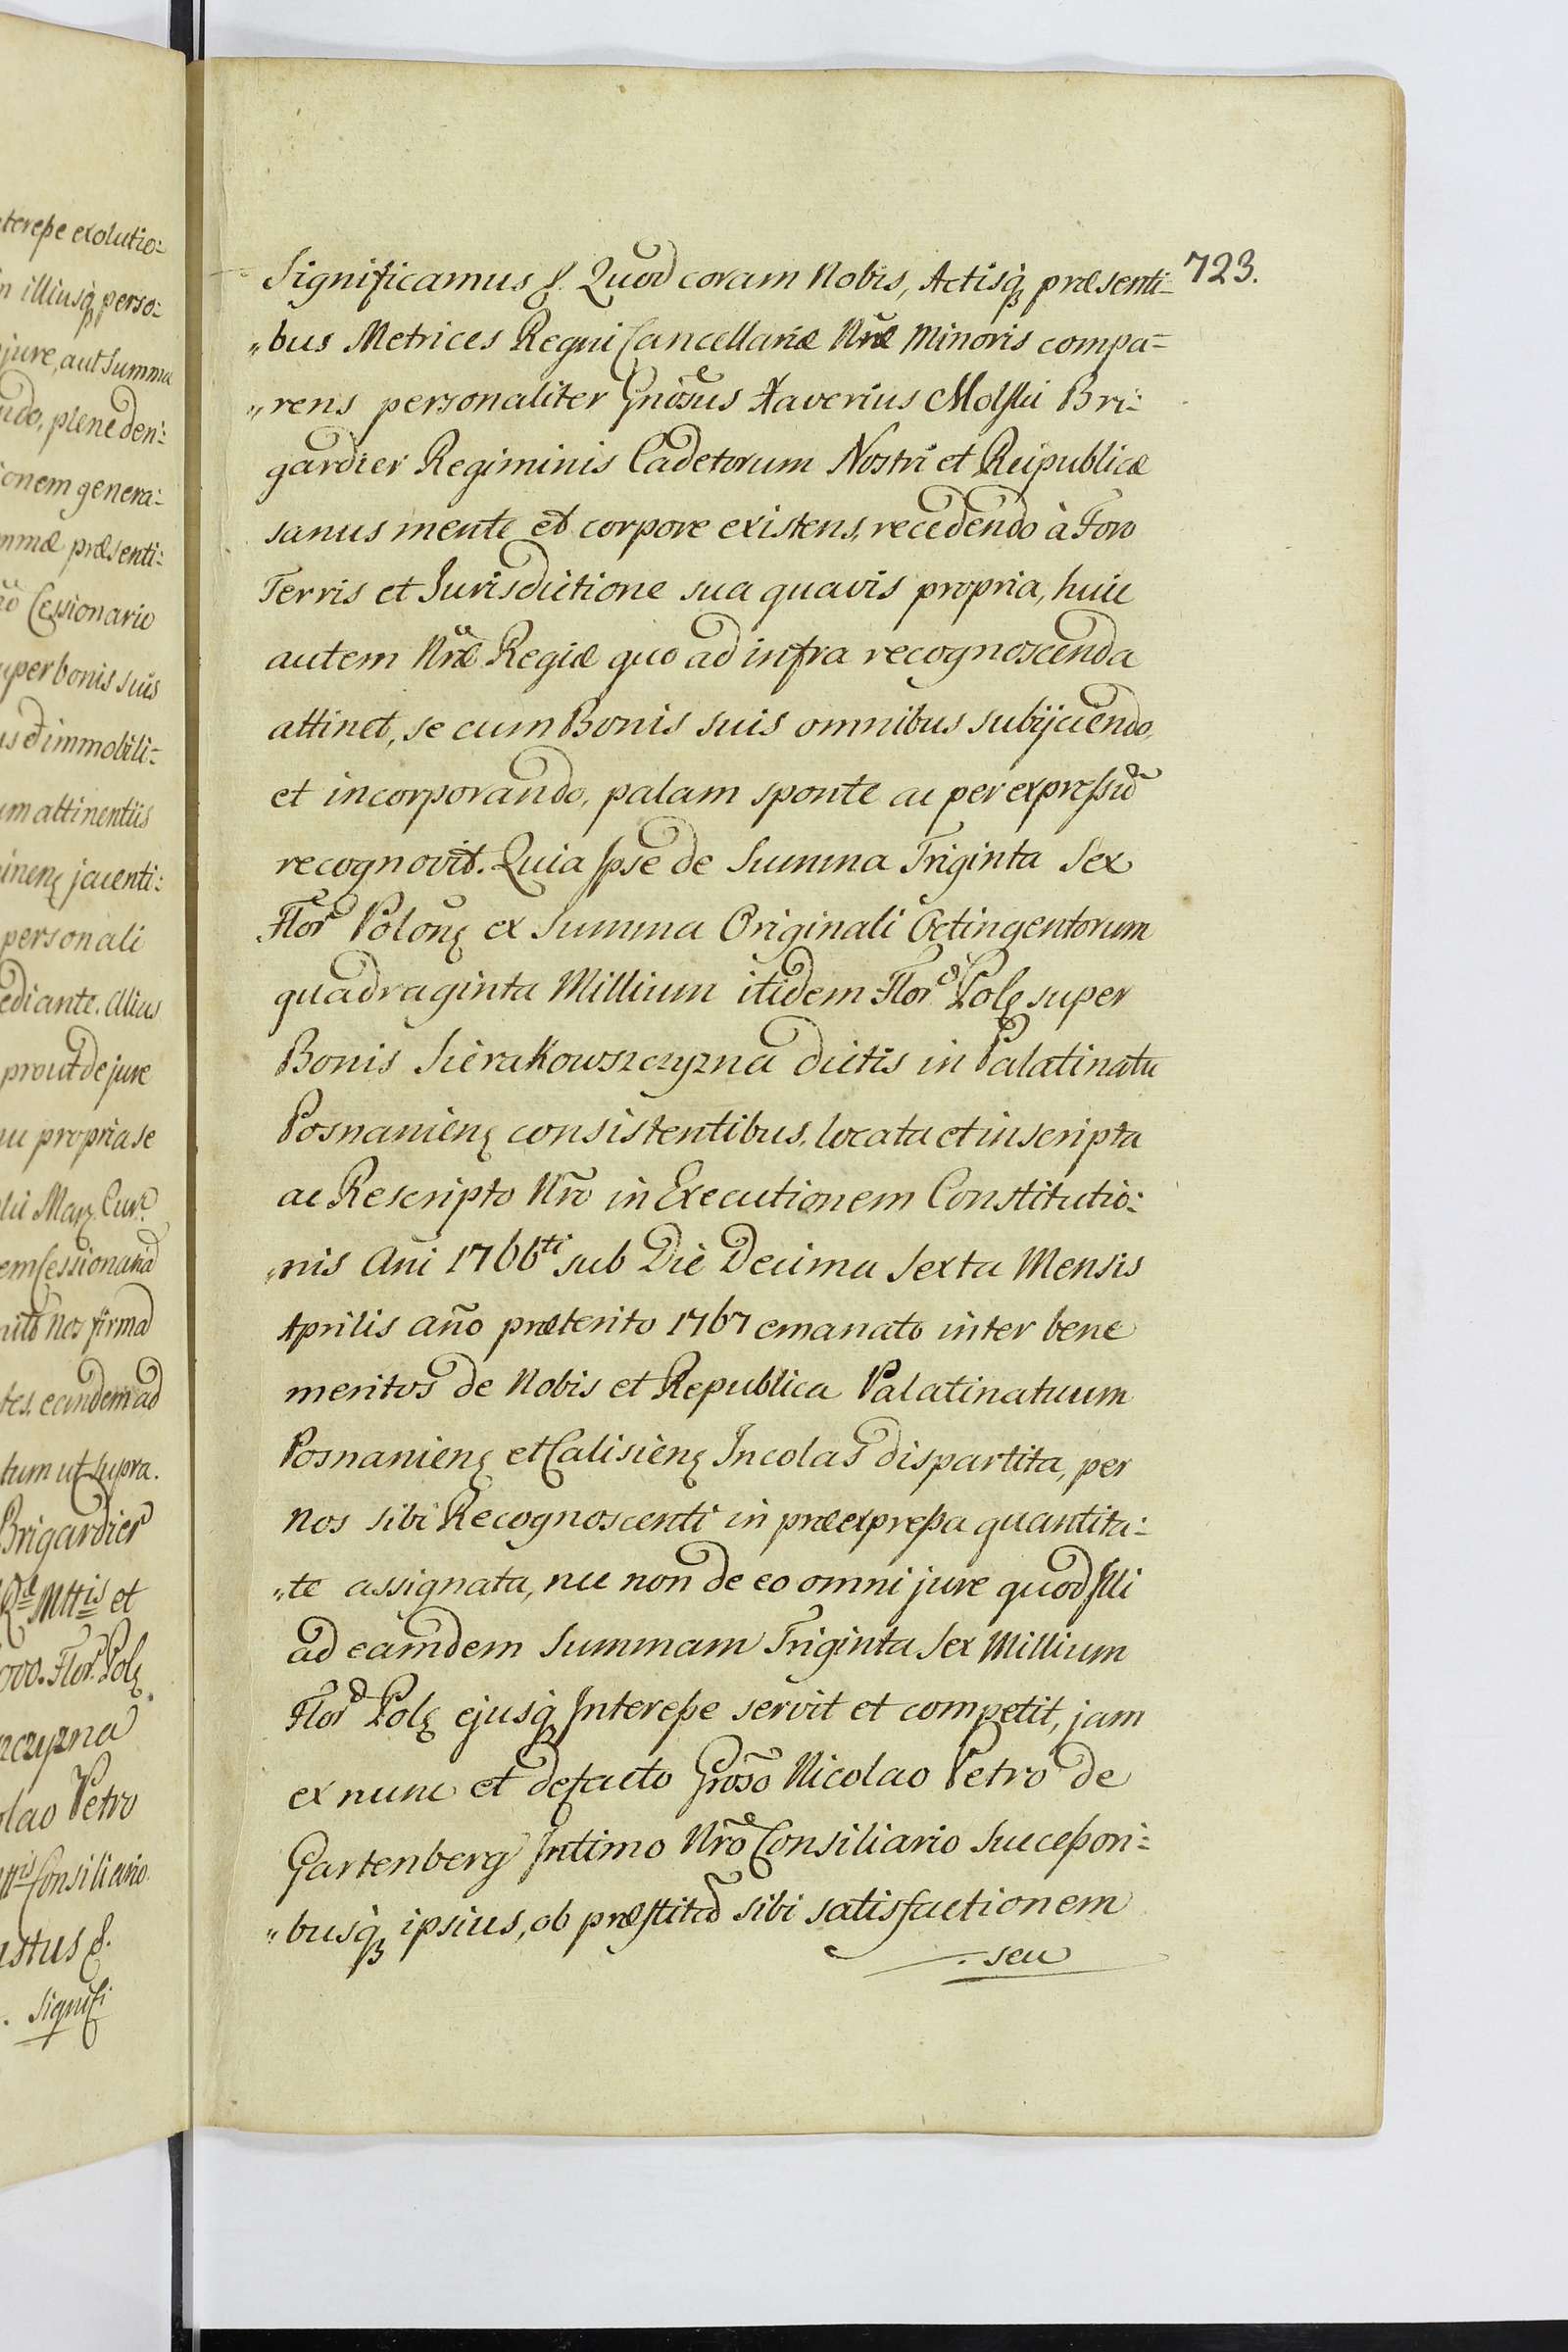 teresse exolutio:
n illiusq; perso:
jure, aut Summa
udo, plene den:
onem genera:
mmæ præsenti:
Cessionario
uper bonis suis
us et immobili:
um attinentiis
inen. jacenti:
personali
ediante. Alias
prout de jure
nu propria se
Mag. Cur.
em Cessionariã
nos firmã
tes. eandem ad
tum ut supra.
Brigardier
Mttis et
000. Flor. Pol.
zczyzna
olao Petro
Consiliario
ustus &.
. Signifi
Significamus &. Quod coram Nobis, Actisq; præsenti- 723.
„bus Metrices Regni Cancellariæ Nræ Minoris compa=
„rens personaliter Gnõsus Xaverius Molski Bri:
gardier Regiminis Cadetorum Nostri et Reipublicæ
sanus mente et corpore existens, recedendo à Foro
Terris et Jurisdictione sua quavis propria, huic
autem Nræ Regiæ quo ad infra recognoscenda
attinet, se cum Bonis suis omnibus subijciendo,
et incorporando, palam sponte ac per expressũ
recognovit. Quia Ipse de Summa Triginta Sex
Flor. Polon. ex Summa Originali Octingentorum
quadraginta Millium itidem Flor. Pol. super
Bonis Sierakowszczyzna dictis in Palatinatu
Posnanien. consistentibus, locata et inscripta
ac Rescripto Nrõ in Executionem Constitutio:
„nis Añi 1766ti sub Die Decima Sexta Mensis
Aprilis año præterito 1767 emanato inter bene
meritos de Nobis et Republica Palatinatuum
Posnanien. et Calisien. Incolas dispartita, per
Nos sibi Recognoscenti in præexpressa quantita:
„te assignata, nec non de eo omni jure quod Illi
ad eamdem Summam Triginta Sex Millium
Flor. Pol. ejusq; Interesse servit et competit, jam
ex nunc et defacto Gnoso Nicolao Petro de
Gartenberg Intimo Nrõ Consiliario Successori:
„busq; ipsius, ob præstitã sibi satisfactionem
. seu